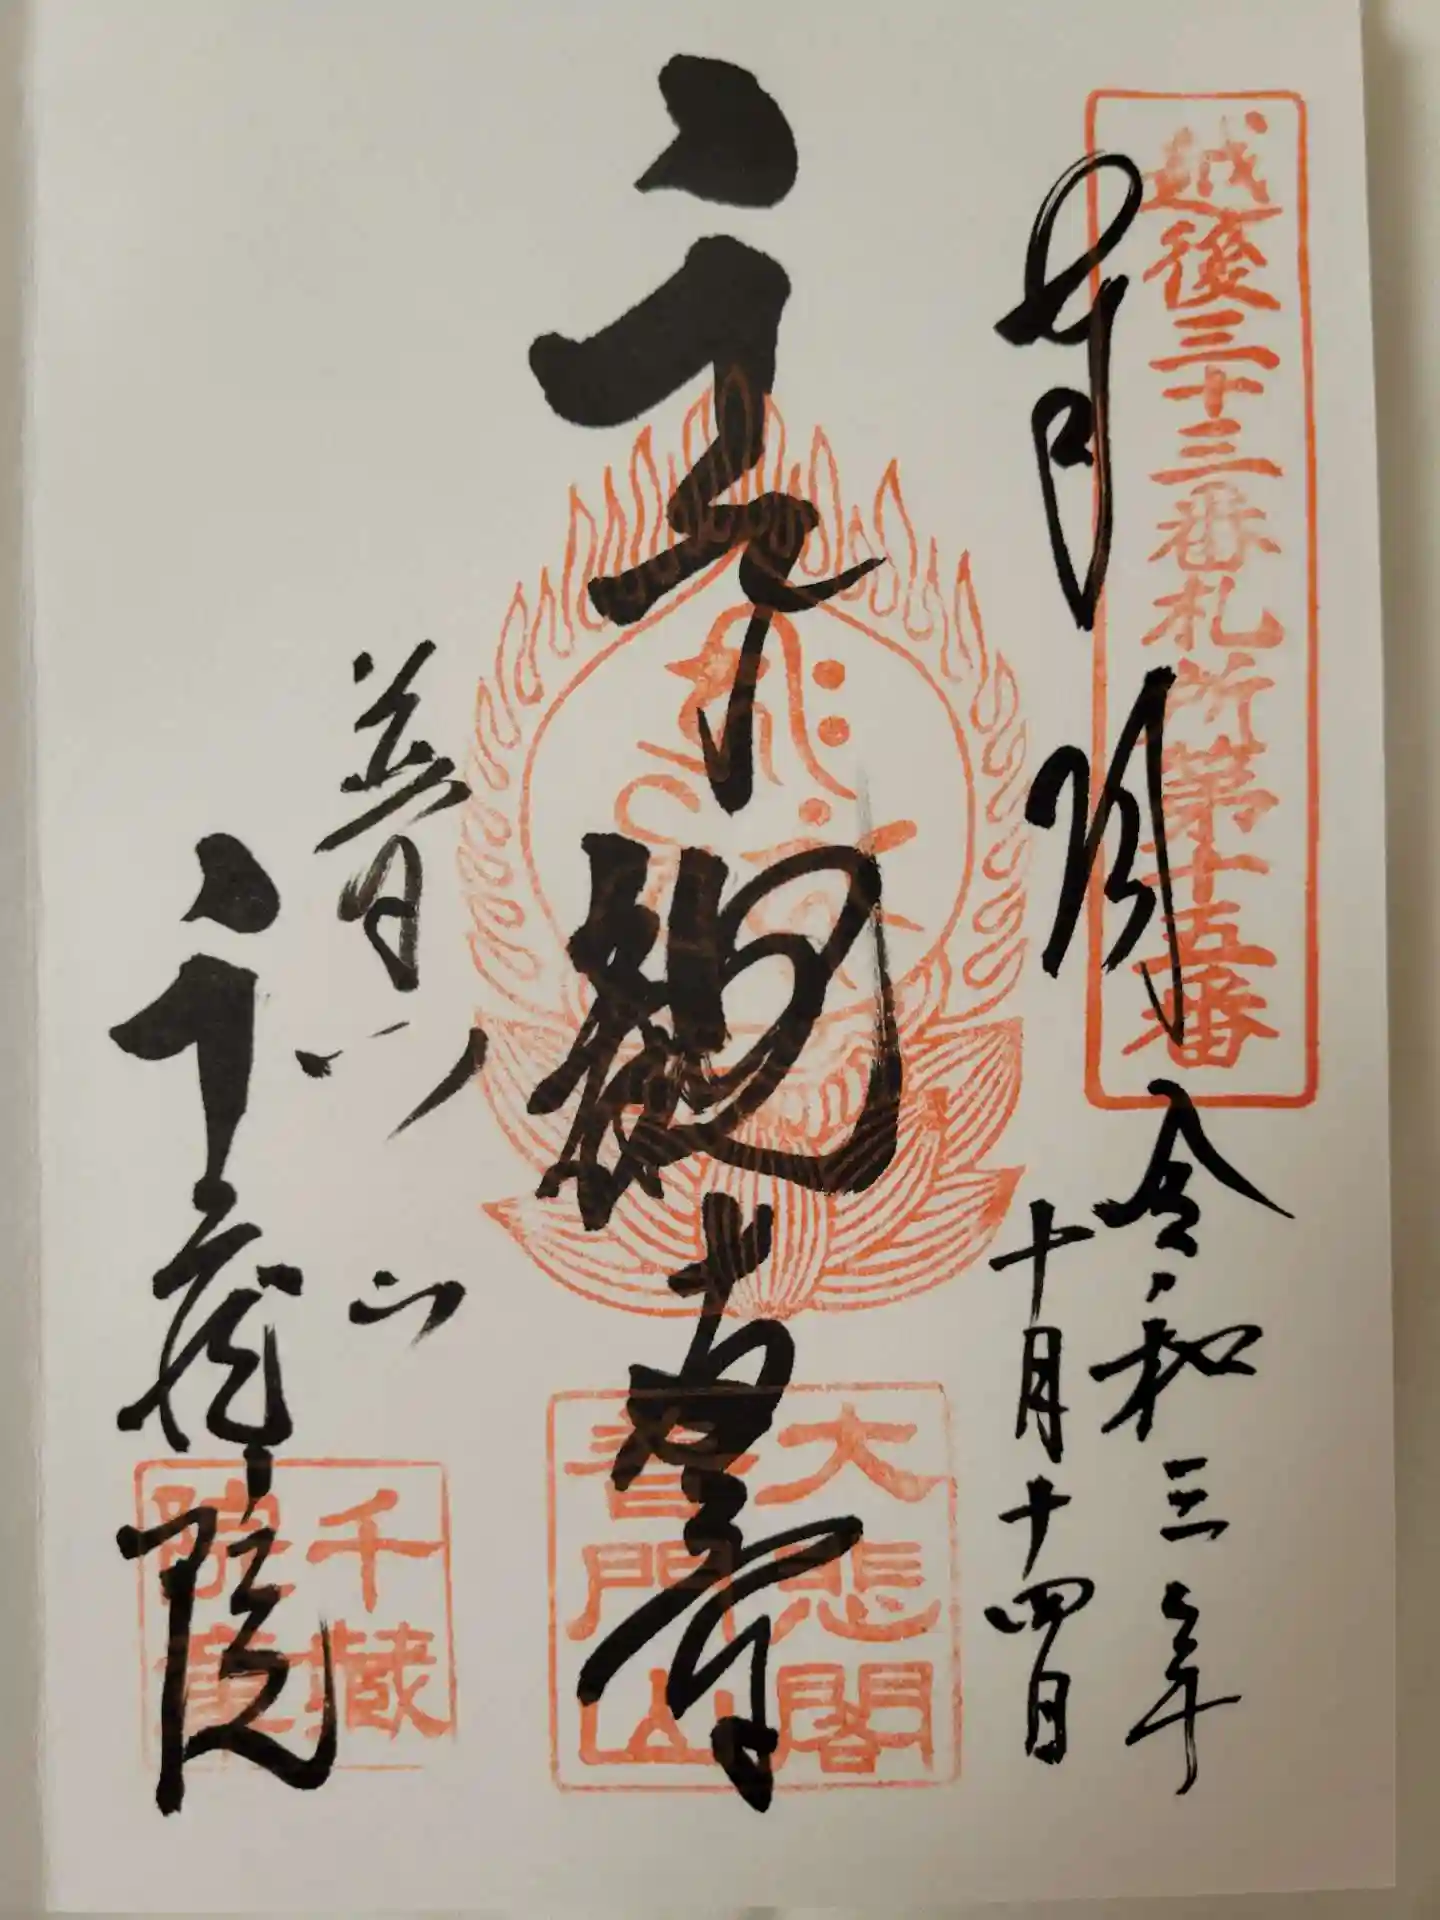 越後三十三番札所第十五番
奉拝
令和三年
十月十四日
千手観
大悲閣
普門山
普門山
千蔵院
千蔵
院